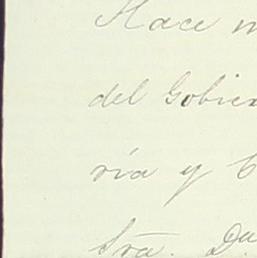 Hace
del Gobier
ria y
Sra. Dª